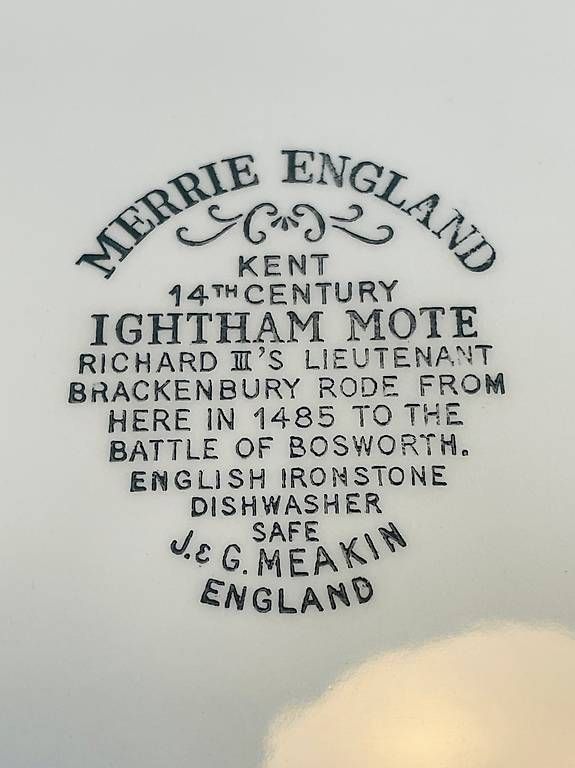 MERRIE ENGLAND
KENT
14TH CENTURY
IGHTHAM MOTE
RICHARD III'S LIEUTENANT
BRACKENBURY RODE FROM
HERE IN 1485 TO THE
BATTLE OF BOSWORTH.
ENGLISH IRONSTONE
DISHWASHER
SAFE
J. & G. MEAKIN
ENGLAND